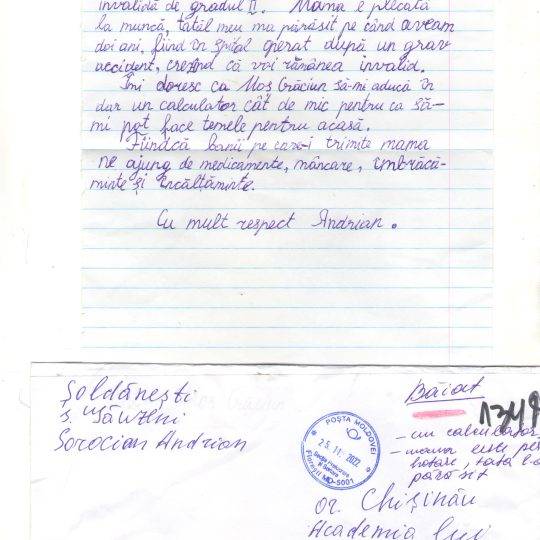 invalidă de gradul II. Mama e plecată
la muncă, tatăl meu ma părăsit pe când aveam
doi ani, fiind în spital operat după un grav
accident, crezînd că voi rămânea invalid.
Îmi doresc ca Moș Crăciun să-mi aducă în
dar un calculator cât de mic pentru ca să-
mi pot face temele pentru acasă.
Fiindcă banii pe care-i trimite mama
ne ajung de medicamente, mâncare, îmbrăcă-
minte și încălțăminte.
Cu mult respect Andrian.
Șoldănești
s.
Sorocian Andrian
Băiat
1349
- un calculator
- mama este pe
hotare, tata l-a
părăsit
POȘTA MOLDOVEI
25.11.2022
Florești MD-5001
or. Chișinău
Academia lui